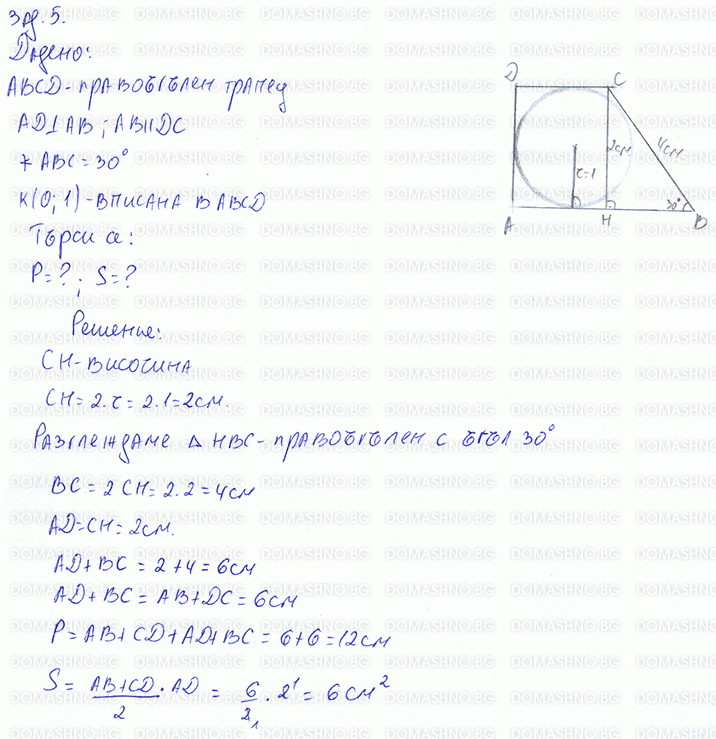 Зад. 5.
Дадено:
ABCD - правоъгълен трапец
AD⊥AB ; AB||DC
∢ ABC = 30°
K(O; 1) - вписана в ABCD
Търси се:
P = ? ; S = ?
Решение:
CH - височина
CH = 2.r = 2.1 = 2см.
Разглеждаме △ HBC - правоъгълен с ъгъл 30°
BC = 2 CH = 2.2 = 4см
AD = CH = 2см.
AD + BC = 2 + 4 = 6см
AD + BC = AB + DC = 6см
P = AB + CD + AD + BC = 6 + 6 = 12см
S = (AB + CD)/2 . AD = 6/2₁ . 2¹ = 6 см²
D C
2см 4см
r=1
30°
A H B
DOMASHNO.BG